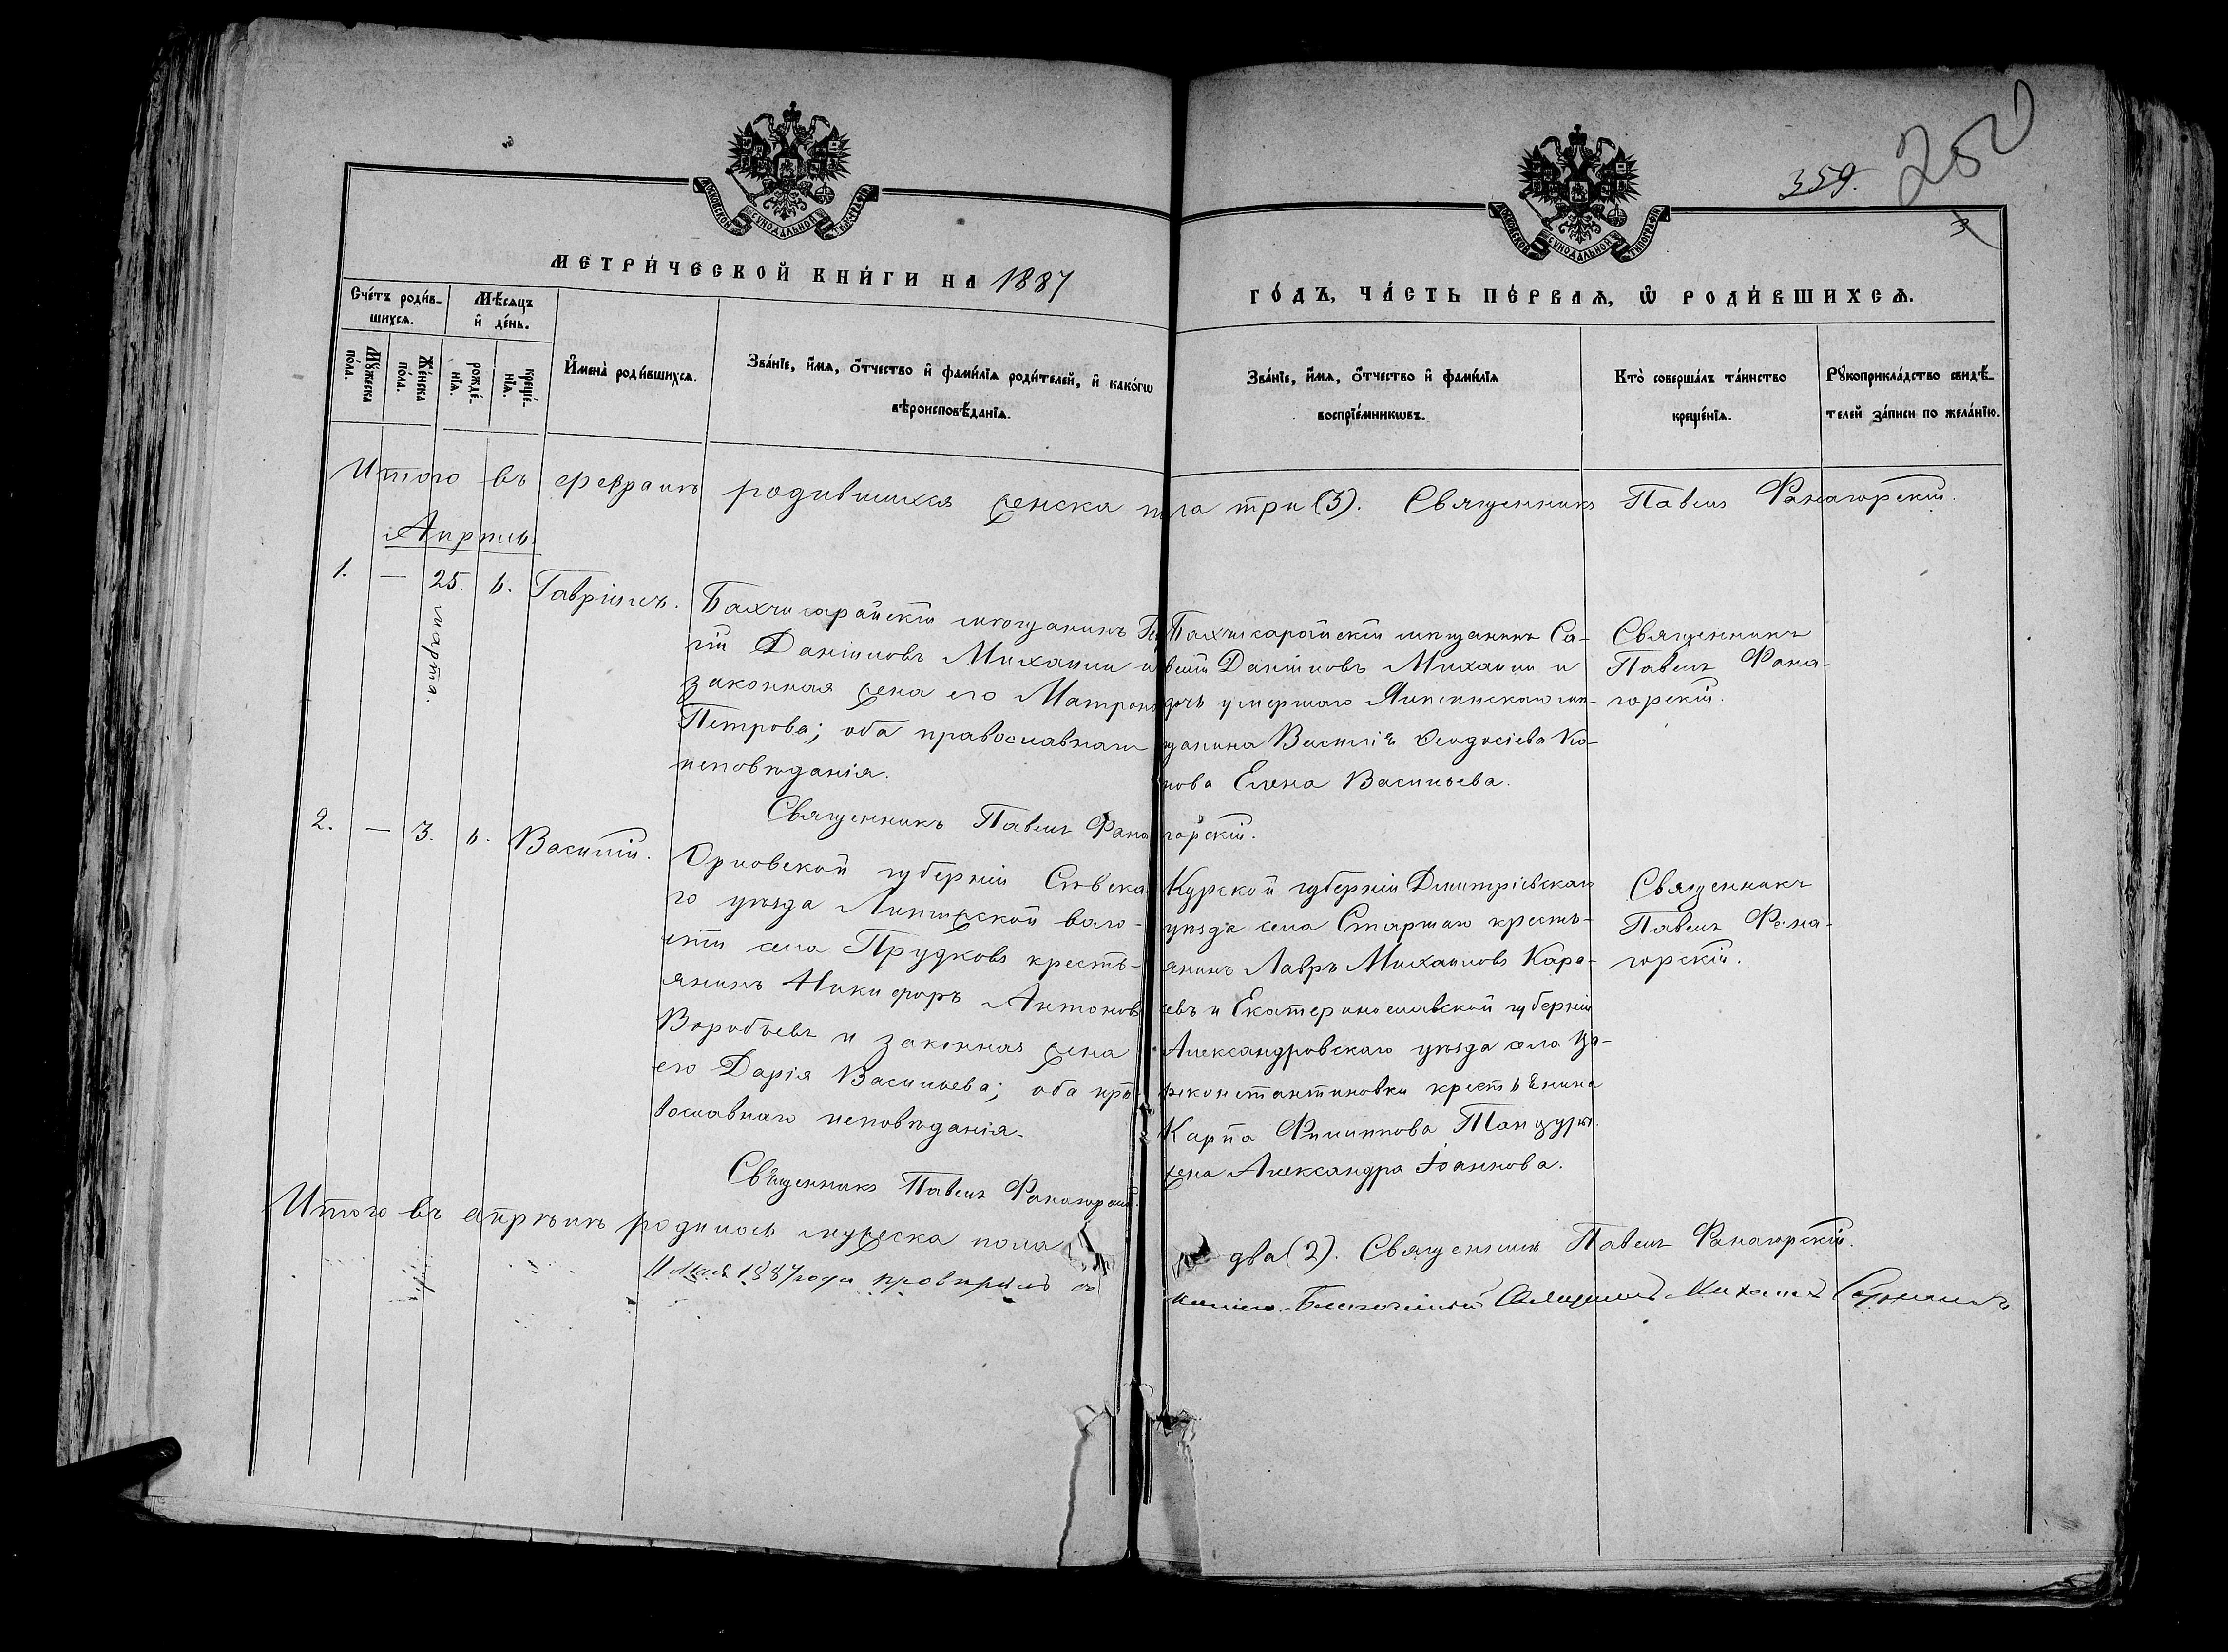 359. 250
3
МОСКОВСКОЙ СѴНОДАЛЬНОЙ ТИПОГРАФІИ
МОСКОВСКОЙ СѴНОДАЛЬНОЙ ТИПОГРАФІИ
МЕТРИ́ЧЕСКОЙ КНИ́ГИ НА 1887
ГО́ДЪ, ЧА́СТЬ ПЕ́РВАѦ, Ѡ РОДИ́ВШИХСѦ.
Сче́тъ роди́в-
шихсѧ.
Мѣ́сѧцъ
и де́нь.
Мꙋ́жеска
по́ла.
Же́нска
по́ла.
рожде́-
нїѧ.
креще́-
нїѧ.
Имена̀ роди́вшихсѧ.
Зва́нїе, и́мѧ, о́тчество и фами́лїѧ роди́телей, и како́гѡ
вѣроисповѣ́данїѧ.
Зва́нїе, и́мѧ, о́тчество и фами́лїѧ
воспрїе́мникѡвъ.
Кто̀ соверша́лъ та́инство
креще́нїѧ.
Рꙋкоприкла́дство свидѣ́-
телей за́писи по жела́нїю.
Итого въ февралѣ родившихся женска пола три (3). Священникъ Павелъ Фанагорскій.
Апрѣль.
1. — 25. марта. 6. Гавріилъ.
Бахчисарайскій мѣщанинъ
гій Даніиловъ Михаили и
законная жена его Матрона
Петрова; оба православнаго
исповѣданія.
Священникъ Павелъ Фанагорскій.
Бахчисарайскій мѣщанинъ Са-
велій Даніиловъ Михаили и
дочь умершаго мѣ-
щанина Василія Ѳеодосіева Ка-
нова Елена Васильева.
Священникъ
Павелъ Фана-
горскій.
2. — 3. 6. Василій.
Орловской губерніи Сѣвска-
го уѣзда волo-
сти села Прудковъ кресть-
янинъ Никифоръ Антоновъ
Воробьевъ и законная жена
его Дарія Васильева; оба пра-
вославнаго исповѣданія.
Священникъ Павелъ Фанагорскій.
Курской губерніи Дмитріевскаго
уѣзда села Старшаго кресть-
янинъ Лавръ Михаиловъ Кара-
евъ и Екатеринославской губерніи
Александровскаго уѣзда села Ца-
реконстантиновки крестьянина
Карпа Филиппова
жена Александра Іоаннова.
Священникъ
Павелъ Фана-
горскій.
Итого въ апрѣлѣ родилось мужеска пола два (2). Священникъ Павелъ Фанагорскій.
11 Мая 1887 года провѣрилъ Благочинный Священникъ Михаилъ